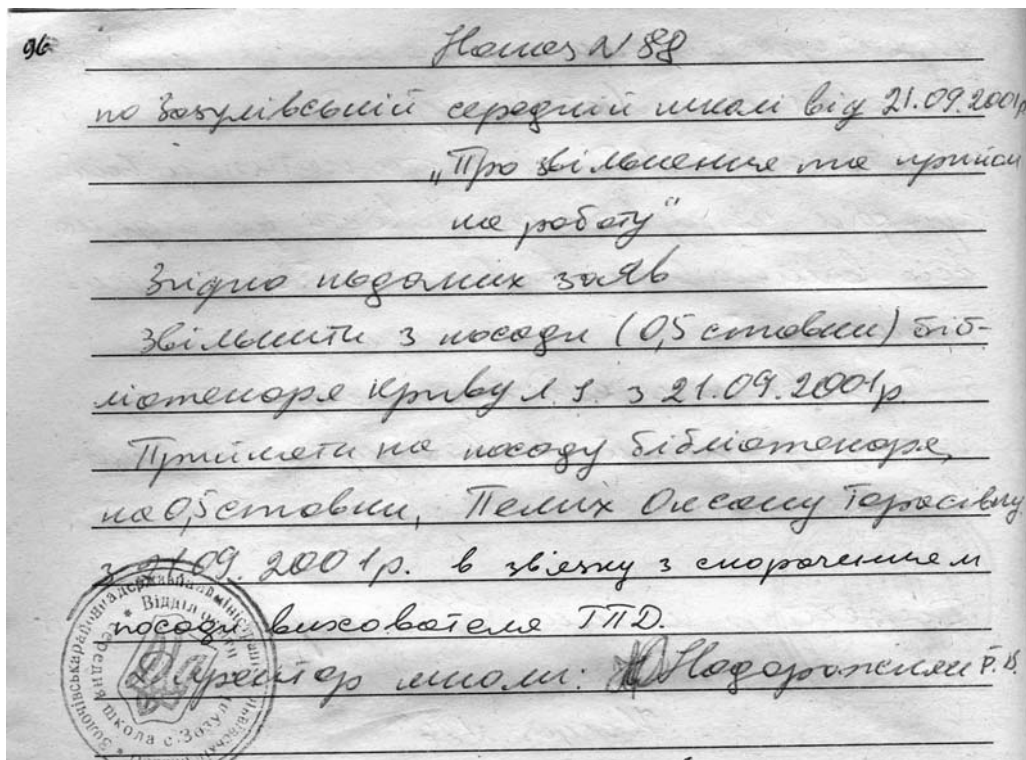 96
Наказ N 88
по Зозулівській середній школі від 21.09.2001р
„Про звільнення та прийом
на роботу"
Згідно поданих заяв
Звільнити з посади (0,5 ставки) біб-
ліотекаря Криву Л. І. з 21.09.2001р
Прийняти на посаду бібліотекаря,
на 0,5 ставки, Пелих Оксану Тарасівну
з 21.09.2001р. в зв'язку з скороченням
посади вихователя ГПД.
Директор школи: Надорожний
Золочівська районна державна адміністрація
Відділ освіти
середня школа с. Зозулі